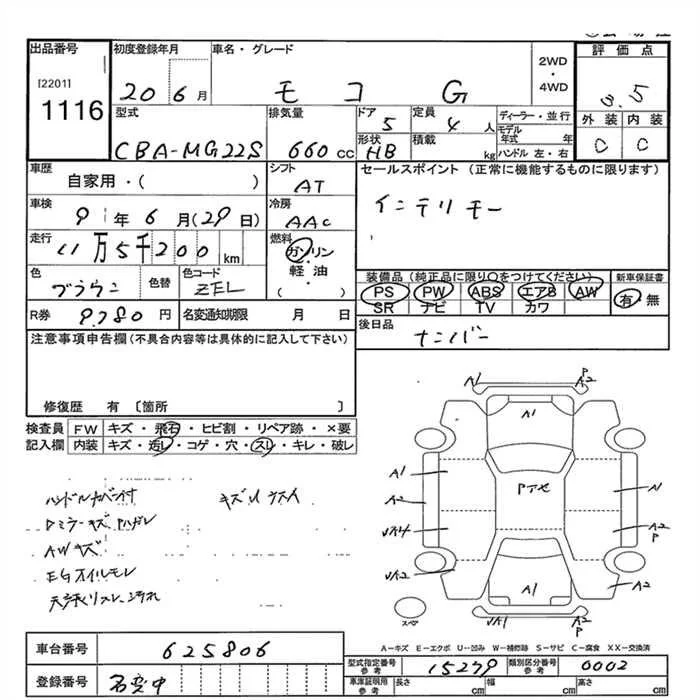 出品番号
[2201]
1116
初度登録年月
20 6月
車名・グレード
モコ G
2WD
・
4WD
評価点
3.5
外装 内装
C C
型式
CBA-MG22S
排気量
660 cc
ドア
5
形状
HB
定員
4 人
積載
kg
ディーラー・並行
モデル年式 年
ハンドル 左・右
車歴
自家用・( )
シフト
AT
車検
9 年 6 月(29日)
冷房
AAC
走行
11万5千200 km
燃料
ガソリン
・
軽油
・
( )
色
ブラウン
色替
色コード
ZFL
R券
9,780 円
名変通知期限 月 日
セールスポイント(正常に機能するものに限ります)
インテリキー
装備品(純正品に限り○をつけてください)
PS PW ABS エアB AW
SR ナビ TV カワ
新車保証書
有・無
後日品
ナンバー
注意事項申告欄(不具合内容等は具体的に記入して下さい)
修復歴 有〔箇所 〕
検査員
記入欄
FW キズ・飛石・ヒビ割・リペア跡・×要
内装 キズ・汚レ・コゲ・穴・スレ・キレ・破レ
ハンドルカバー付
キズ
AWキズ
EGオイルモレ
A1
P
A2
A1
A1
A2
Pアセ
A2
P
A2
A2
A1
A1
P
A2
スペア
A-キズ E-エクボ U-凹み W-補修跡 S-サビ C-腐食 XX-交換済
車台番号
625806
登録番号
名変中
型式指定番号
参考
15279
類別区分番号
参考
0002
車庫証明用
参考
長さ cm
幅 cm
高さ cm